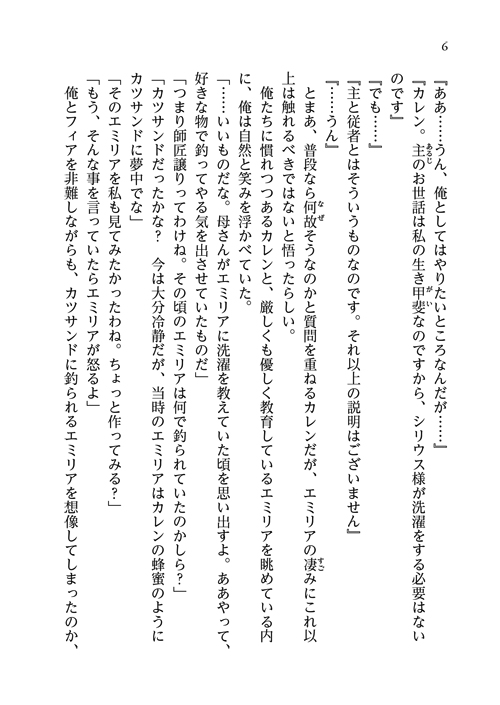 6
『ああ……うん、俺としてはやりたいところなんだが……』
『カレン。主のお世話は私の生き甲斐なのですから、シリウス様が洗濯をする必要はない
のです』
『でも……』
『主と従者とはそういうものなのです。それ以上の説明はございません』
『……うん』
　とまあ、普段なら何故そうなのかと質問を重ねるカレンだが、エミリアの凄みにこれ以
上は触れるべきではないと悟ったらしい。
　俺たちに慣れつつあるカレンと、厳しくも優しく教育しているエミリアを眺めている内
に、俺は自然と笑みを浮かべていた。
「……いいものだな。母さんがエミリアに洗濯を教えていた頃を思い出すよ。ああやって、
好きな物で釣ってやる気を出させていたものだ」
「つまり師匠譲りってわけね。その頃のエミリアは何で釣られていたのかしら？」
「カツサンドだったかな？　今は大分冷静だが、当時のエミリアはカレンの蜂蜜のように
カツサンドに夢中でな」
「そのエミリアを私も見てみたかったわね。ちょっと作ってみる？」
「もう、そんな事を言っていたらエミリアが怒るよ」
　俺とフィアを非難しながらも、カツサンドに釣られるエミリアを想像してしまったのか、